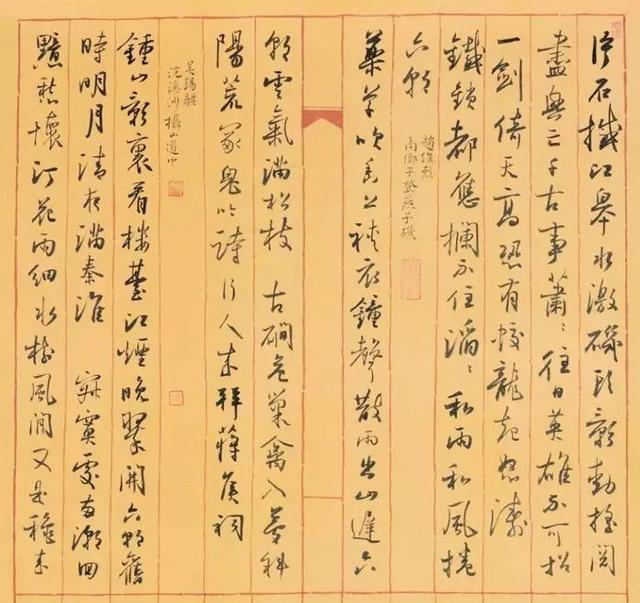 片石撼江皋水激磯頭影動搖閱
盡興亡千古事蕭蕭往日英雄不可招
一劍倚天高恐有蛟龍起怒濤
鐵鎖都應攔不住滔滔和雨和風捲
六朝
趙維烈
南鄉子登燕子磯
藥草吹香上裌衣鐘聲散雨出山遲六
朝雲氣滿松枝 古硐危巢禽入夢斜
陽荒冢鬼吟詩行人來拜蔣侯祠
吳錫麒
浣溪沙 攝山道中
鍾山影裏看樓臺江煙晚翠開六朝舊
時明月清夜滿秦淮 寂寞處兩潮回
黯愁懷汀花雨細水樹風閒又是秋來